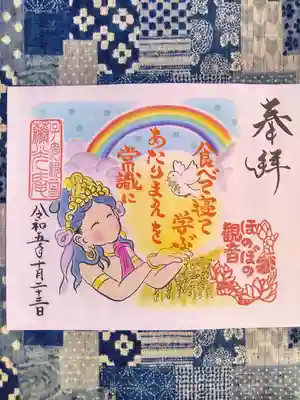 奉拝
食べて寝て
学ぶ
あたりまえを
常識に
ほのぼの
観音
令和五年十月二十三日